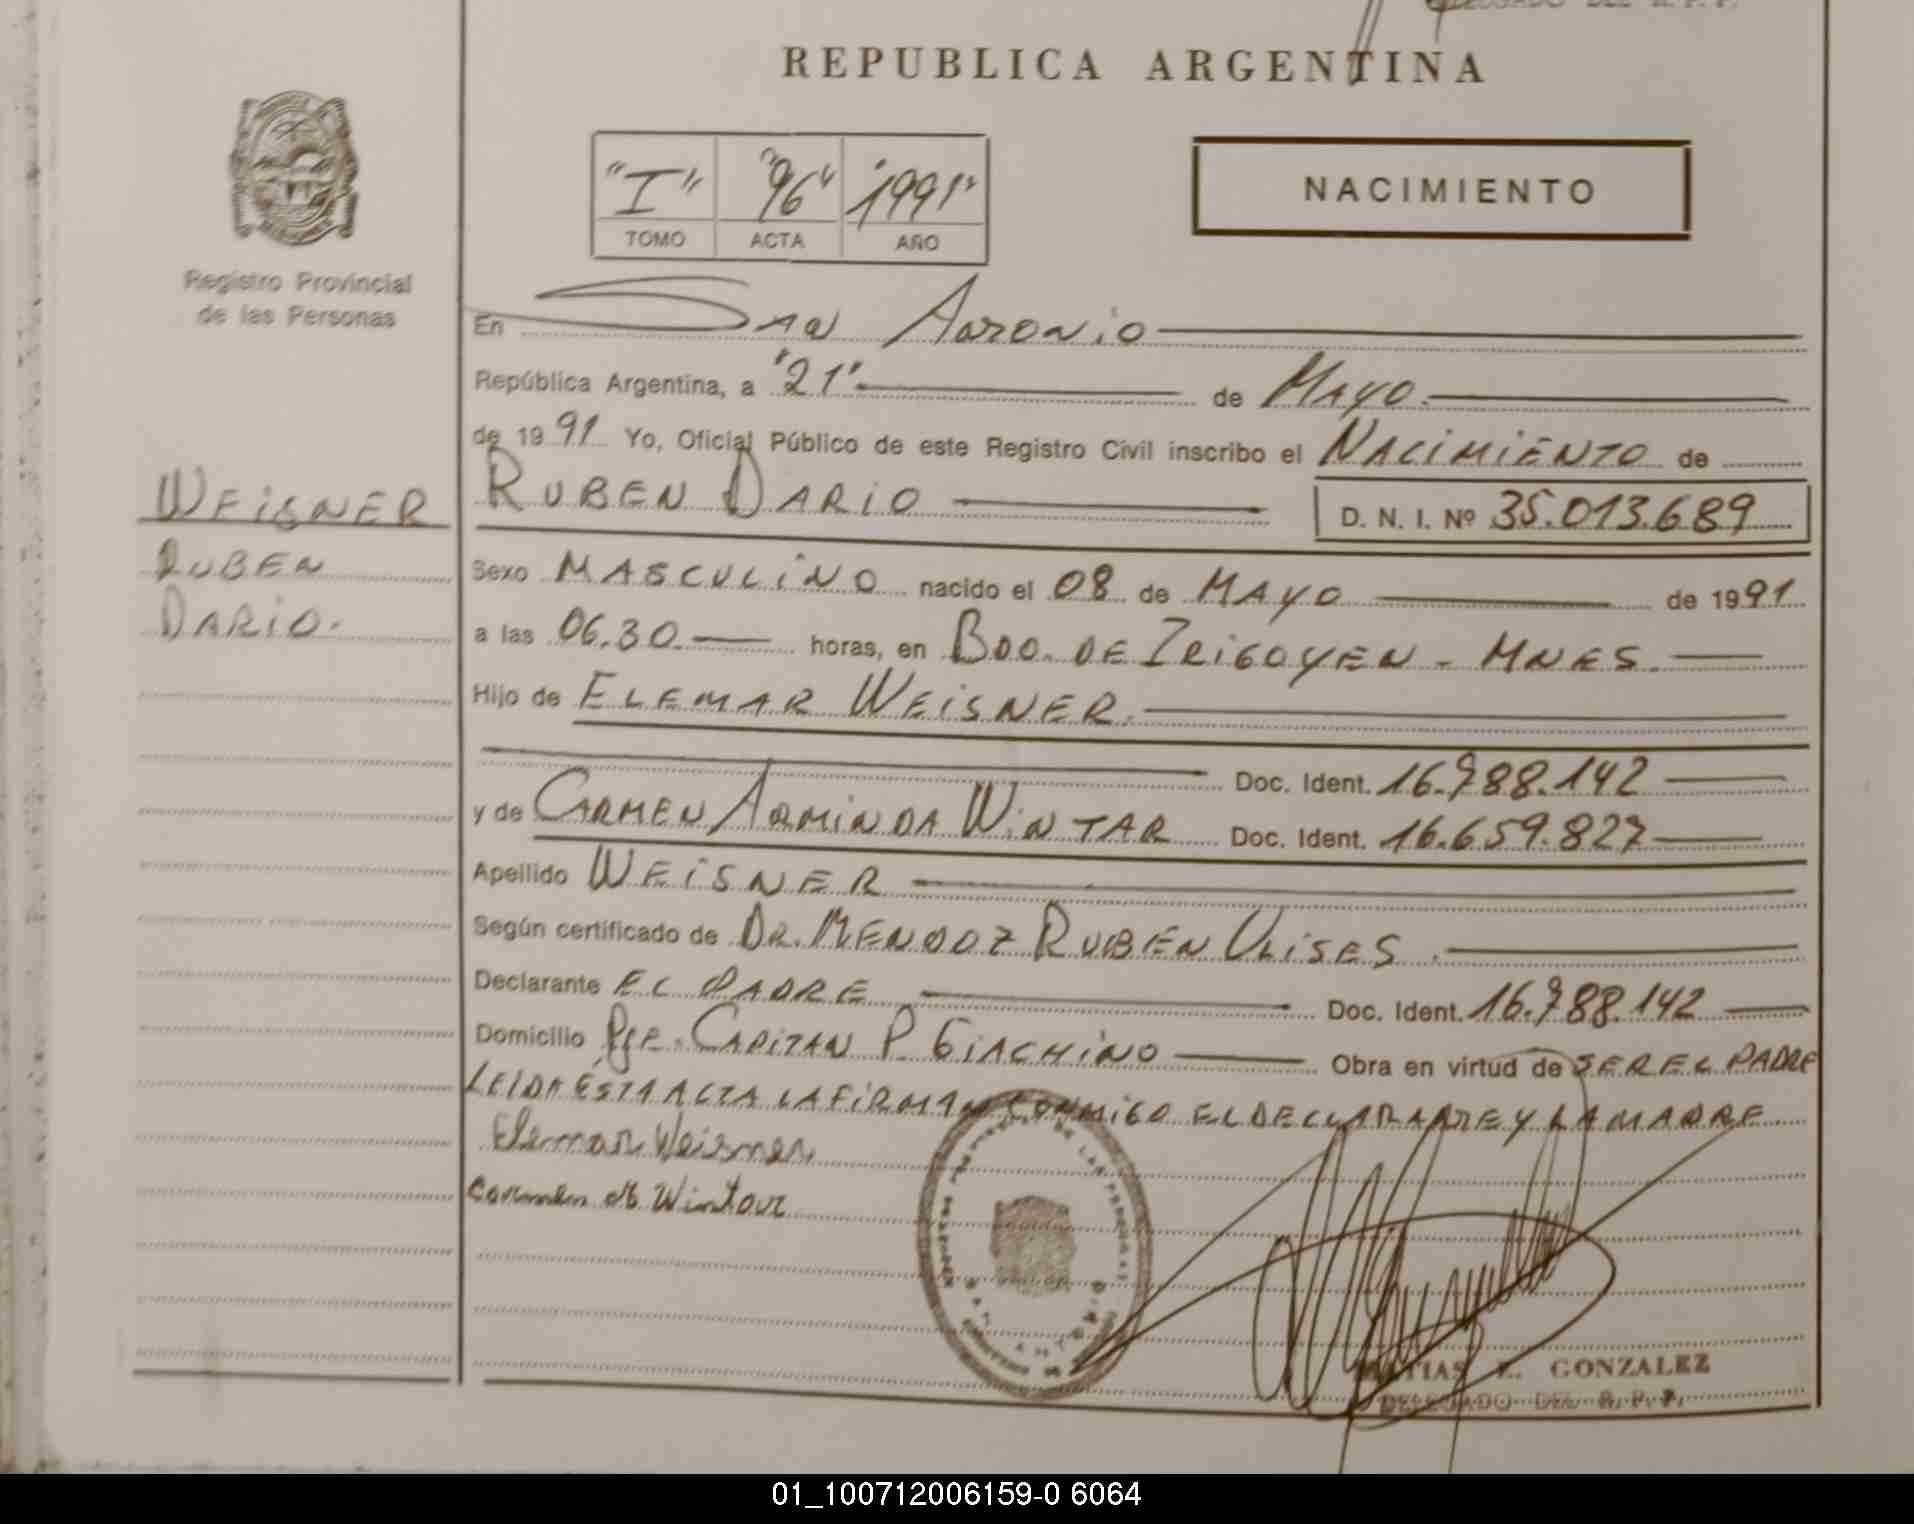 DELEGADO DEL R. P. P.
REPUBLICA ARGENTINA
"I" "96" "1991"
TOMO ACTA AÑO
NACIMIENTO
Registro Provincial
de las Personas
En San Antonio
República Argentina, a "21" de MAYO
de 1991 Yo, Oficial Público de este Registro Civil inscribo el NACIMIENTO de
WEISNER
RUBEN
DARIO.
RUBEN DARIO D. N. I. Nº 35.013.689
Sexo MASCULINO nacido el 08 de MAYO de 1991
a las 06.30 horas, en BDO. DE IRIGOYEN - MNES.
Hijo de ELEMAR WEISNER.
Doc. Ident. 16.788.142
y de CARMEN ARMINDA WINTAR Doc. Ident. 16.659.827
Apellido WEISNER
Según certificado de DR. MENDOZ RUBEN ULISES.
Declarante EL PADRE Doc. Ident. 16.788.142
Domicilio Pje. CAPITAN P. GIACHINO Obra en virtud de SER EL PADRE
LEIDA ESTA ACTA LA FIRMAN CONMIGO EL DECLARANTE Y LA MADRE
Elemar Weisner
Carmen A Wintar
SAN ANTONIO
GONZALEZ
DELEGADO DEL R. P. P.
01_100712006159-0 6064